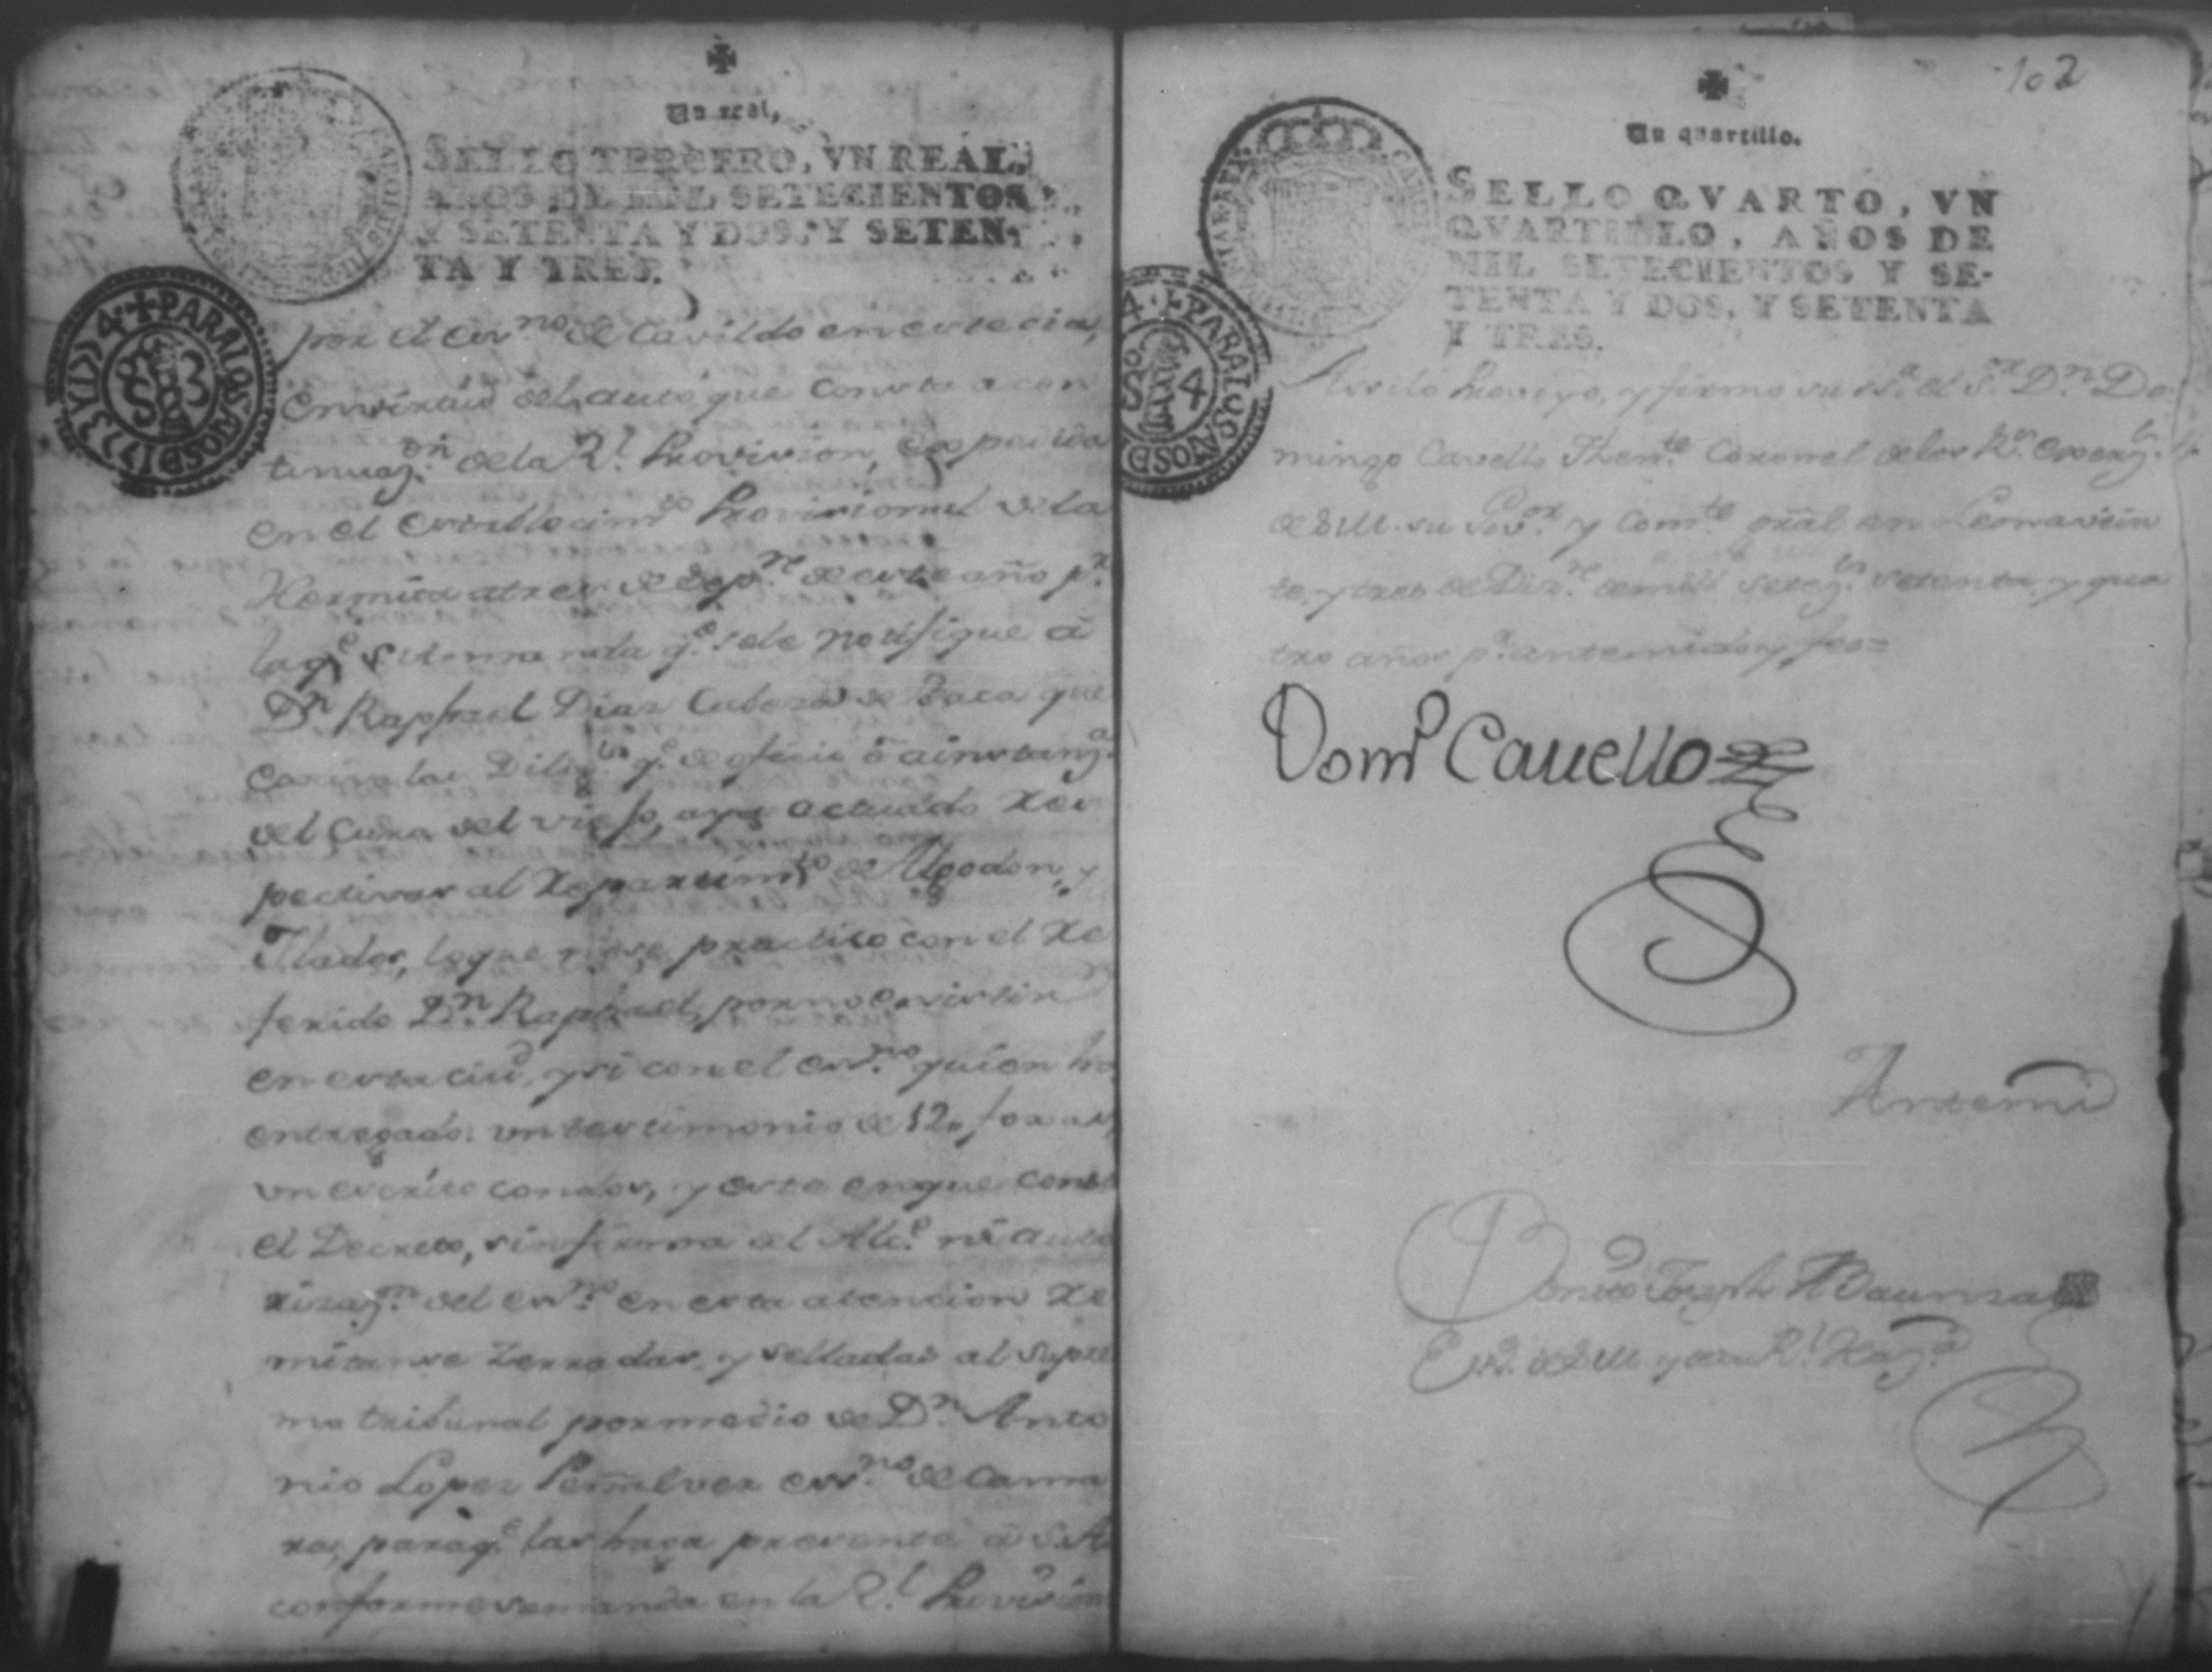 Un real,
SELLO TERCERO, VN REAL,
AÑOS DE MIL SETECIENTOS
Y SETENTA Y DOS, Y SETEN-
TA Y TRES.
PARA LOS AÑOS DE 1773 Y 1774
S 3
por el esv.no de Cavildo en esta ciu,
en virtud del auto que consta a con
tinuaz.on de la R.l Provision, expedida
en el establecim.to Provisional de la
Hermita a tres de Sep.re de este año p.r
la q.e se manda q.e se le notifique â
D.n Raphael Diaz Cabeza de Baca que
las Dilig.as q.e de oficio ô a instanz.a
del Cura del viejo, aya actuado res
pectivas al repartim.to de Algodon, y
Ilados, lo que no se practicó con el re
ferido D.n Raphael, por no existir
en esta ciud, y si con el esv.no quien ha
entregado un testimonio de 12. foxas,
un escrito con dos, y este en que const
el Decreto, sin firma del Alc.e ni auto
rizaz.on del esv.no en esta atencion re
mitanse zerradas, y selladas al Supre
mo tribunal por medio de D.n Anto
nio Lopez Peñalver esv.no de Cama
ra, para q.e las haga presente â S.A
conforme se manda en la R.l Provision
102
Un quartillo.
SELLO QVARTO, VN
QVARTILLO, AÑOS DE
MIL SETECIENTOS Y SE-
TENTA Y DOS, Y SETENTA
Y TRES.
PARA LOS AÑOS DE
S 4
Assi lo Proveyo, y firmó su S.a el S.or D.n Do
mingo Cavello Then.te Coronel de los R.s Exerz.tos
de S.M. su Gov.or y Com.te gral en Leon a vein
te, y tres de Diz.re de mil setez.tos setenta, y qua
tro años p.r antemi doy fee=
Dom.o Cauello
Antemi
Joseph
Es.no de S.M. y de su R.l Haz.da